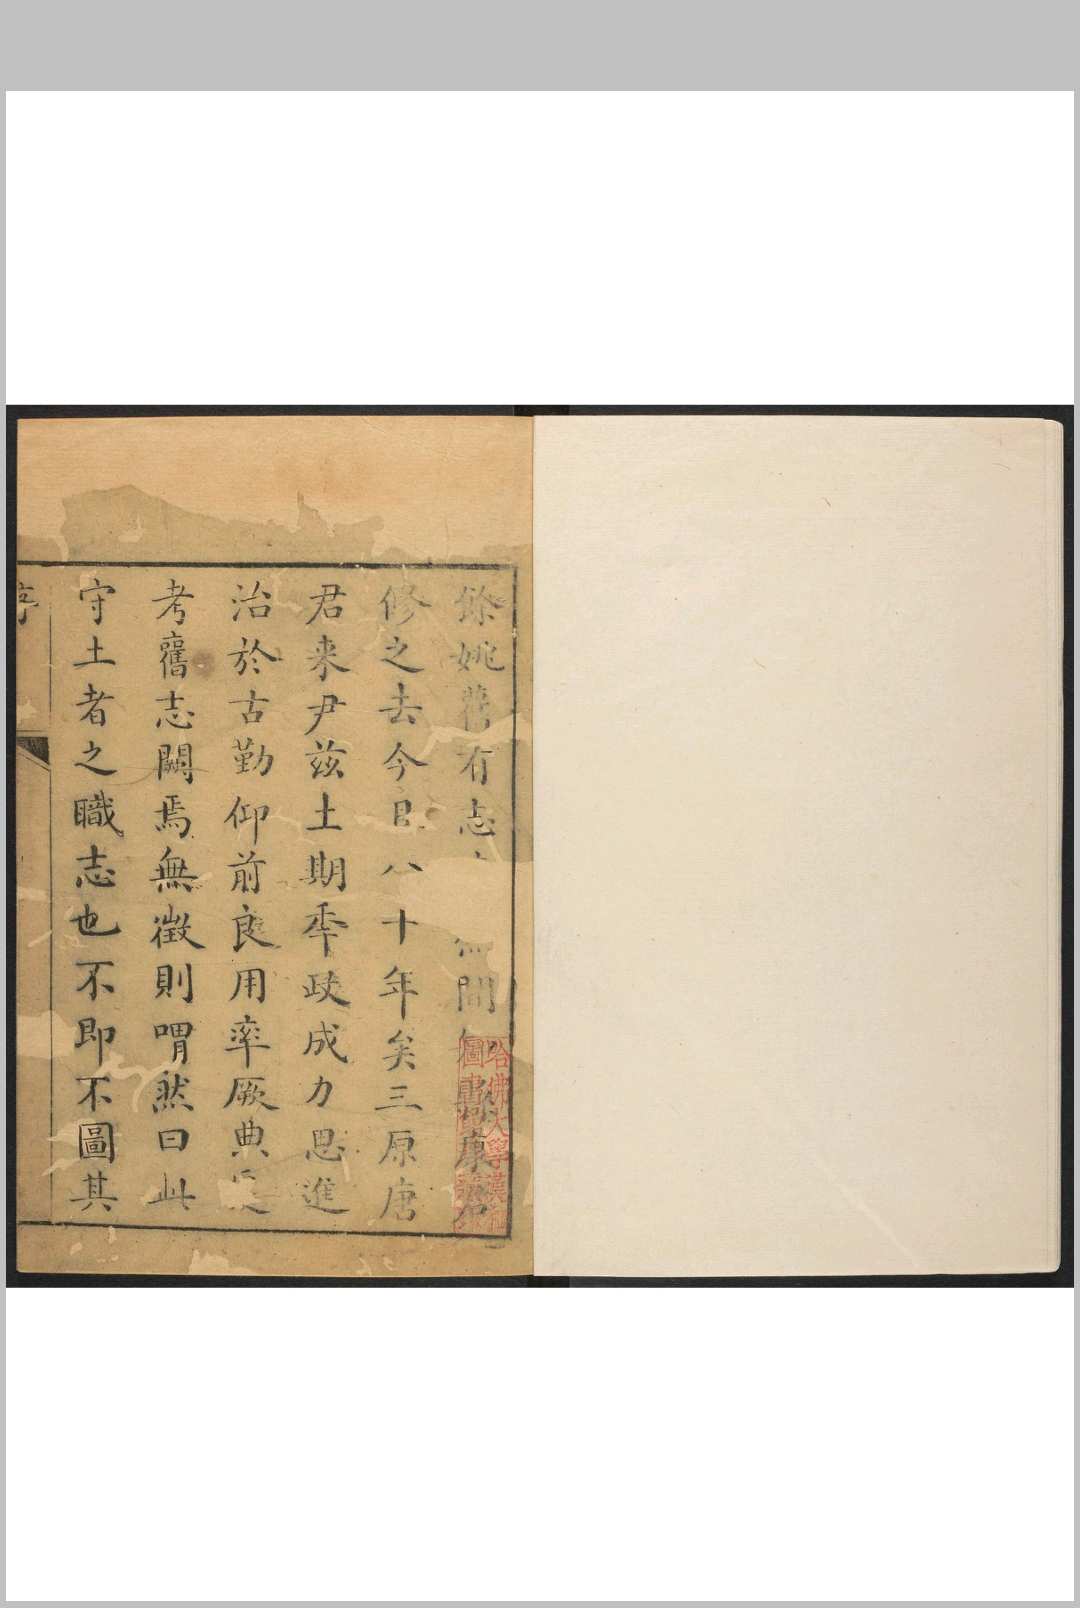 餘姚舊有志
間
康君
修之去今
八十年矣三原唐
君来尹兹土期秊政成力思進
治於古勤仰前良用率厥典爰
考舊志闕焉無徵則喟然曰此
守土者之職志也不即不圖其
序
哈佛大學漢和
圖書